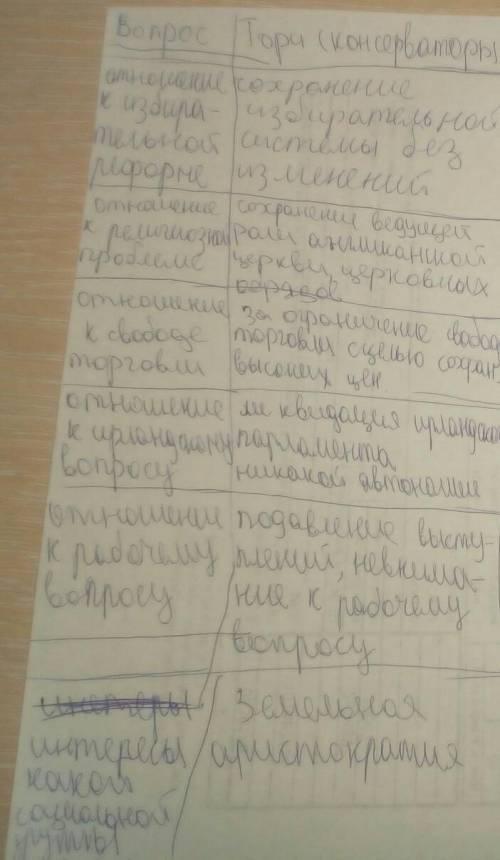 Вопрос Тори (консерваторы
отношение сохранение
к избира- избирательной
тельной системы без
реформе изменений
отношение сохранение ведущей
к религиозной роли англиканской
проблеме церкви, церковных
обрядов
отношение за ограничение свобод
к свободе торговли с целью сохран
торговли высоких цен
отношение ликвидация ирландско
к ирландскому парламента
вопросу никакой автономии
отношение подавление высту-
к рабочему плений, невнима-
вопросу ние к рабочему
вопросу
интересы Земельная
интересы аристократия
какой
социальной
группы